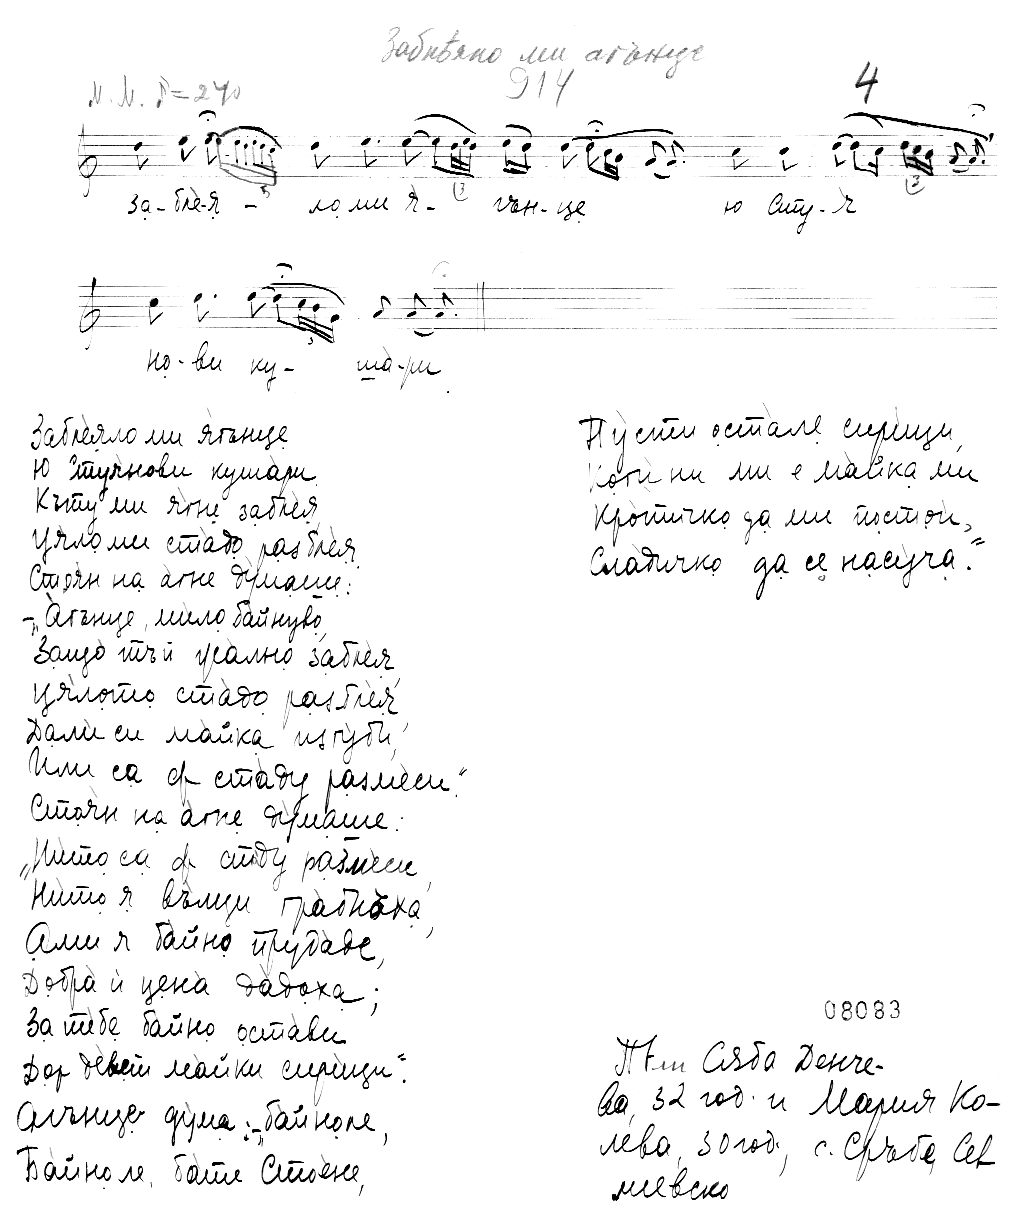 Заблѣяло ми агънце
914
4
М. М. ♪=240
за-бле-я - ло ми я- гън-це ю Сту-я
но-ви ку- ша-ри
Заблеяло ми ягънце
Ю Стуянови кушари
Къту ми ягне заблея,
Цяло ми стадо разблея
Стоян на агне думаше:
-„Агънце, мило байнуво,
Защо тъй жално заблея
Цялото стадо разблея
Дали си майка изгуби,
Или са ф стаду размеси"
Стоян на агне думаше:
„Нито са ф стду размеси,
Нито я вълци грабнаха,
Ами я байно прудаде,
Добра й цена дадоха;
За тебе байно остави
Дор девет майки сирищи".
Агънце дума: -„байноле,
Байноле, бате Стоене,
Пусти остале сирищи,
Коги ни ми е майка ми
Кротичко да ми постои,
Сладичко да се насуча."
08083
Пѣли Сяба Денче-
ва, 32 год. и Мария Ко-
лева, 30 год., с. Сръбе, Сев
лиевско